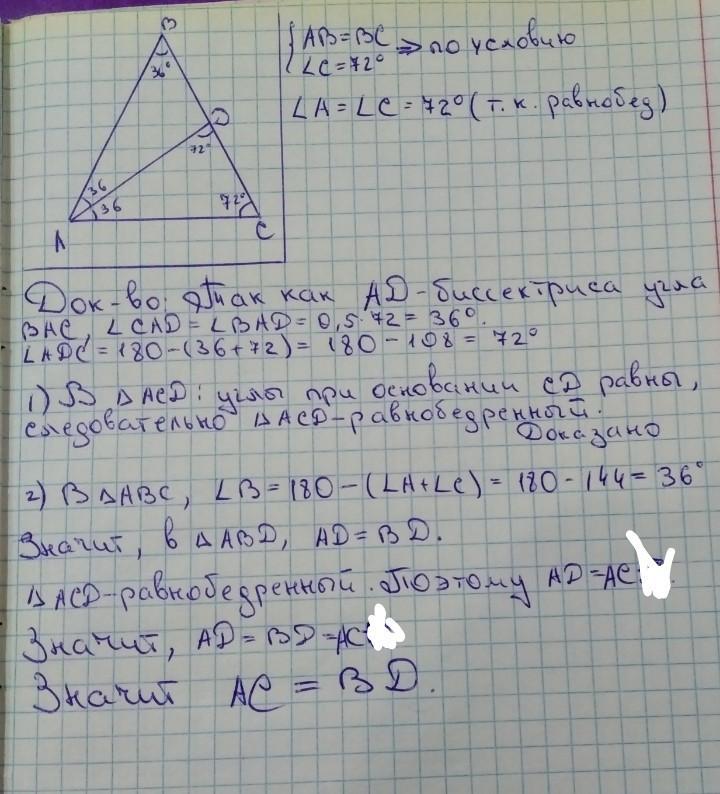 B
36°
D
72°
36
36
72°
A
C
{ AB = BC
∠C = 72° => по условию
∠A = ∠C = 72° (т.к. равнобед)
Док-во: Так как AD - биссектриса угла
BAC, ∠CAD = ∠BAD = 0,5·72 = 36°.
∠ADC = 180 - (36+72) = 180 - 108 = 72°
1) В △ACD: углы при основании CD равны,
следовательно △ACD - равнобедренный.
Доказано
2) В △ABC, ∠B = 180 - (∠A+∠C) = 180 - 144 = 36°
Значит, в △ABD, AD = BD.
△ACD - равнобедренный. Поэтому AD = AC
Значит, AD = BD = AC
Значит AC = BD.